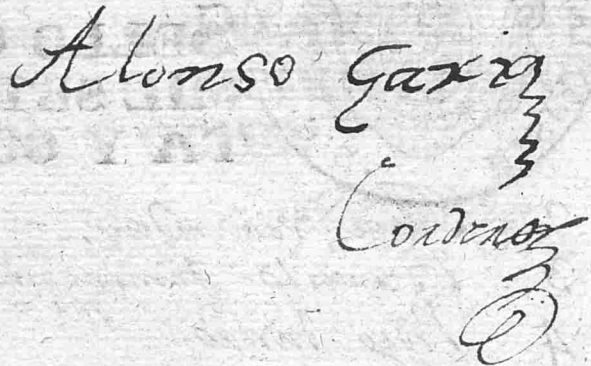 Alonso Garzia
Cordero